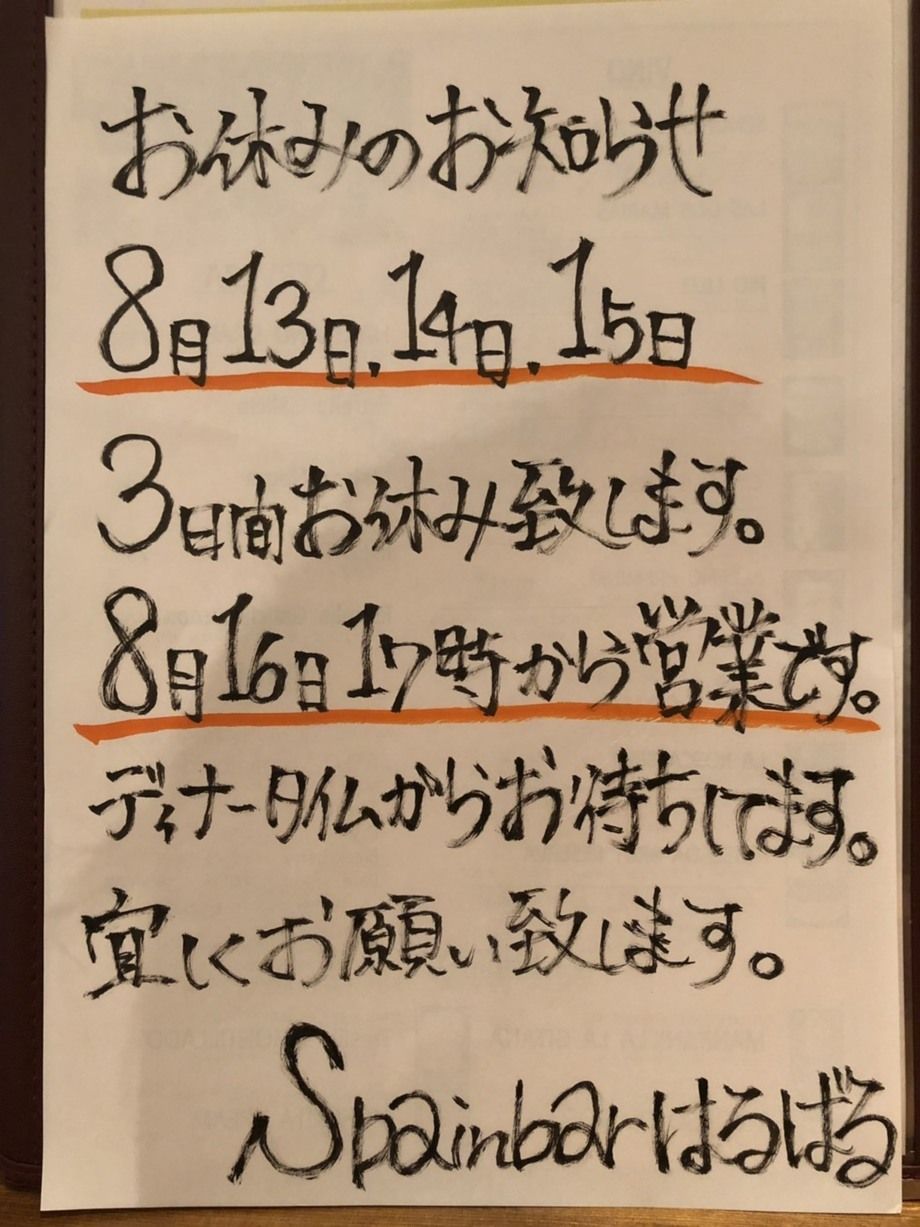 お休みのお知らせ
8月13日.14日.15日
3日間お休み致します。
8月16日17時から営業です。
ディナータイムからお待ちしてます。
宜しくお願い致します。
Spainbarはるばる